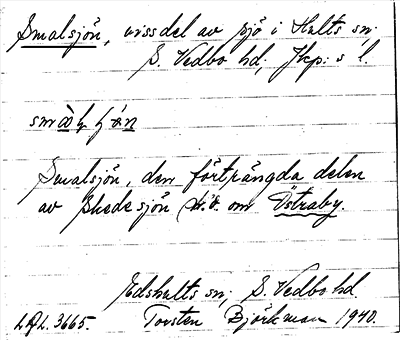 Smalsjön, viss del av sjö i Hults sn,
S. Vedbo hd, Jkp:s l.
Smalsjön, den förträngda delen
av Skedesjön n.v. om Östraby.
Edshults sn, S. Vedbo hd.
L.A.L. 3665. Torsten Björkman 1940.